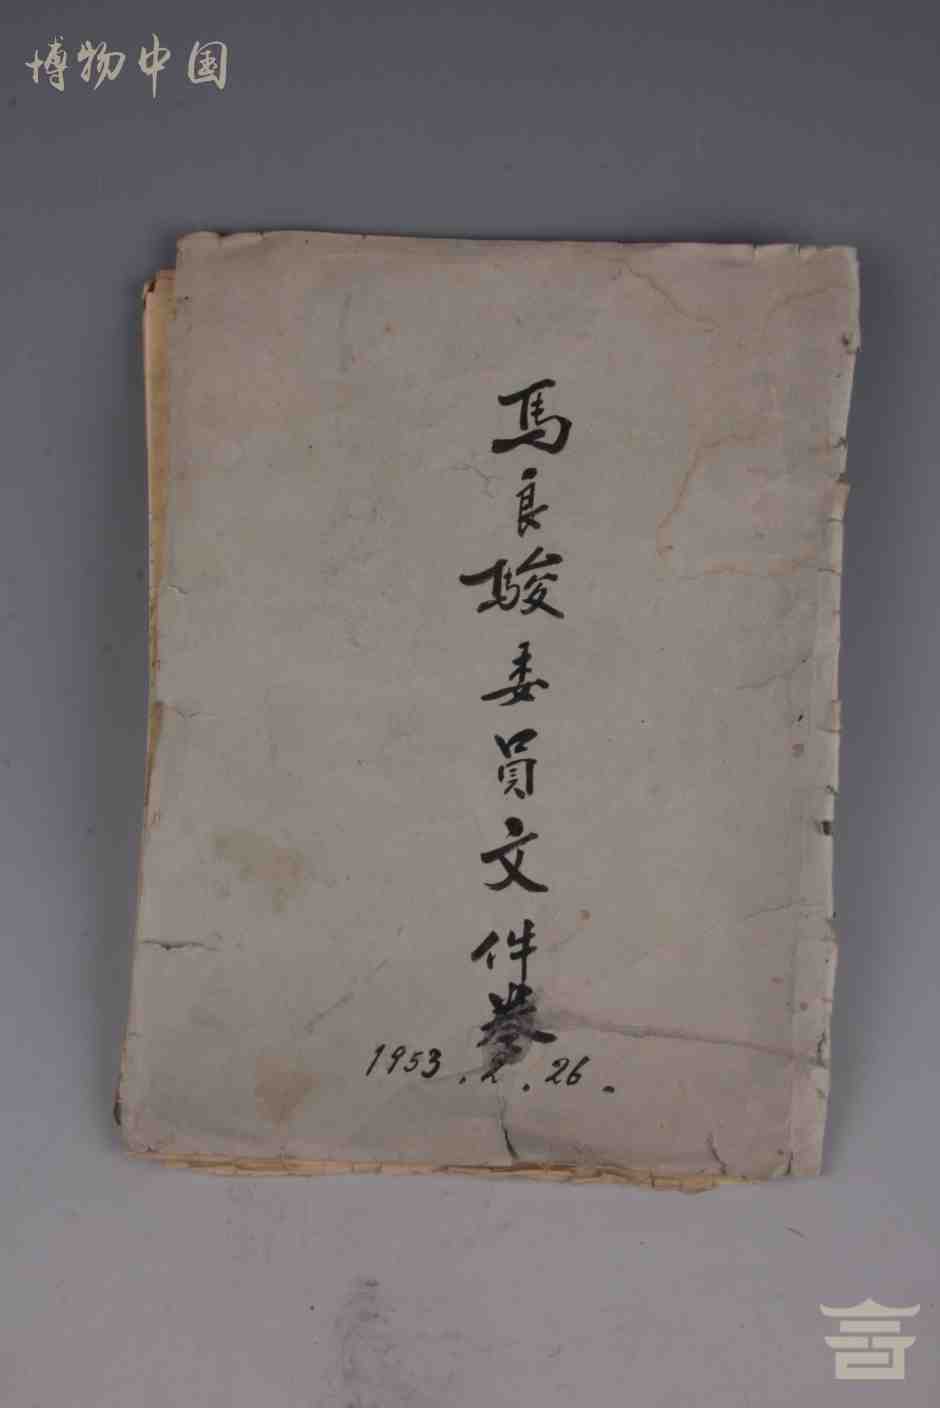 博物中国
馬良駿委員文件卷
1953.2.26.